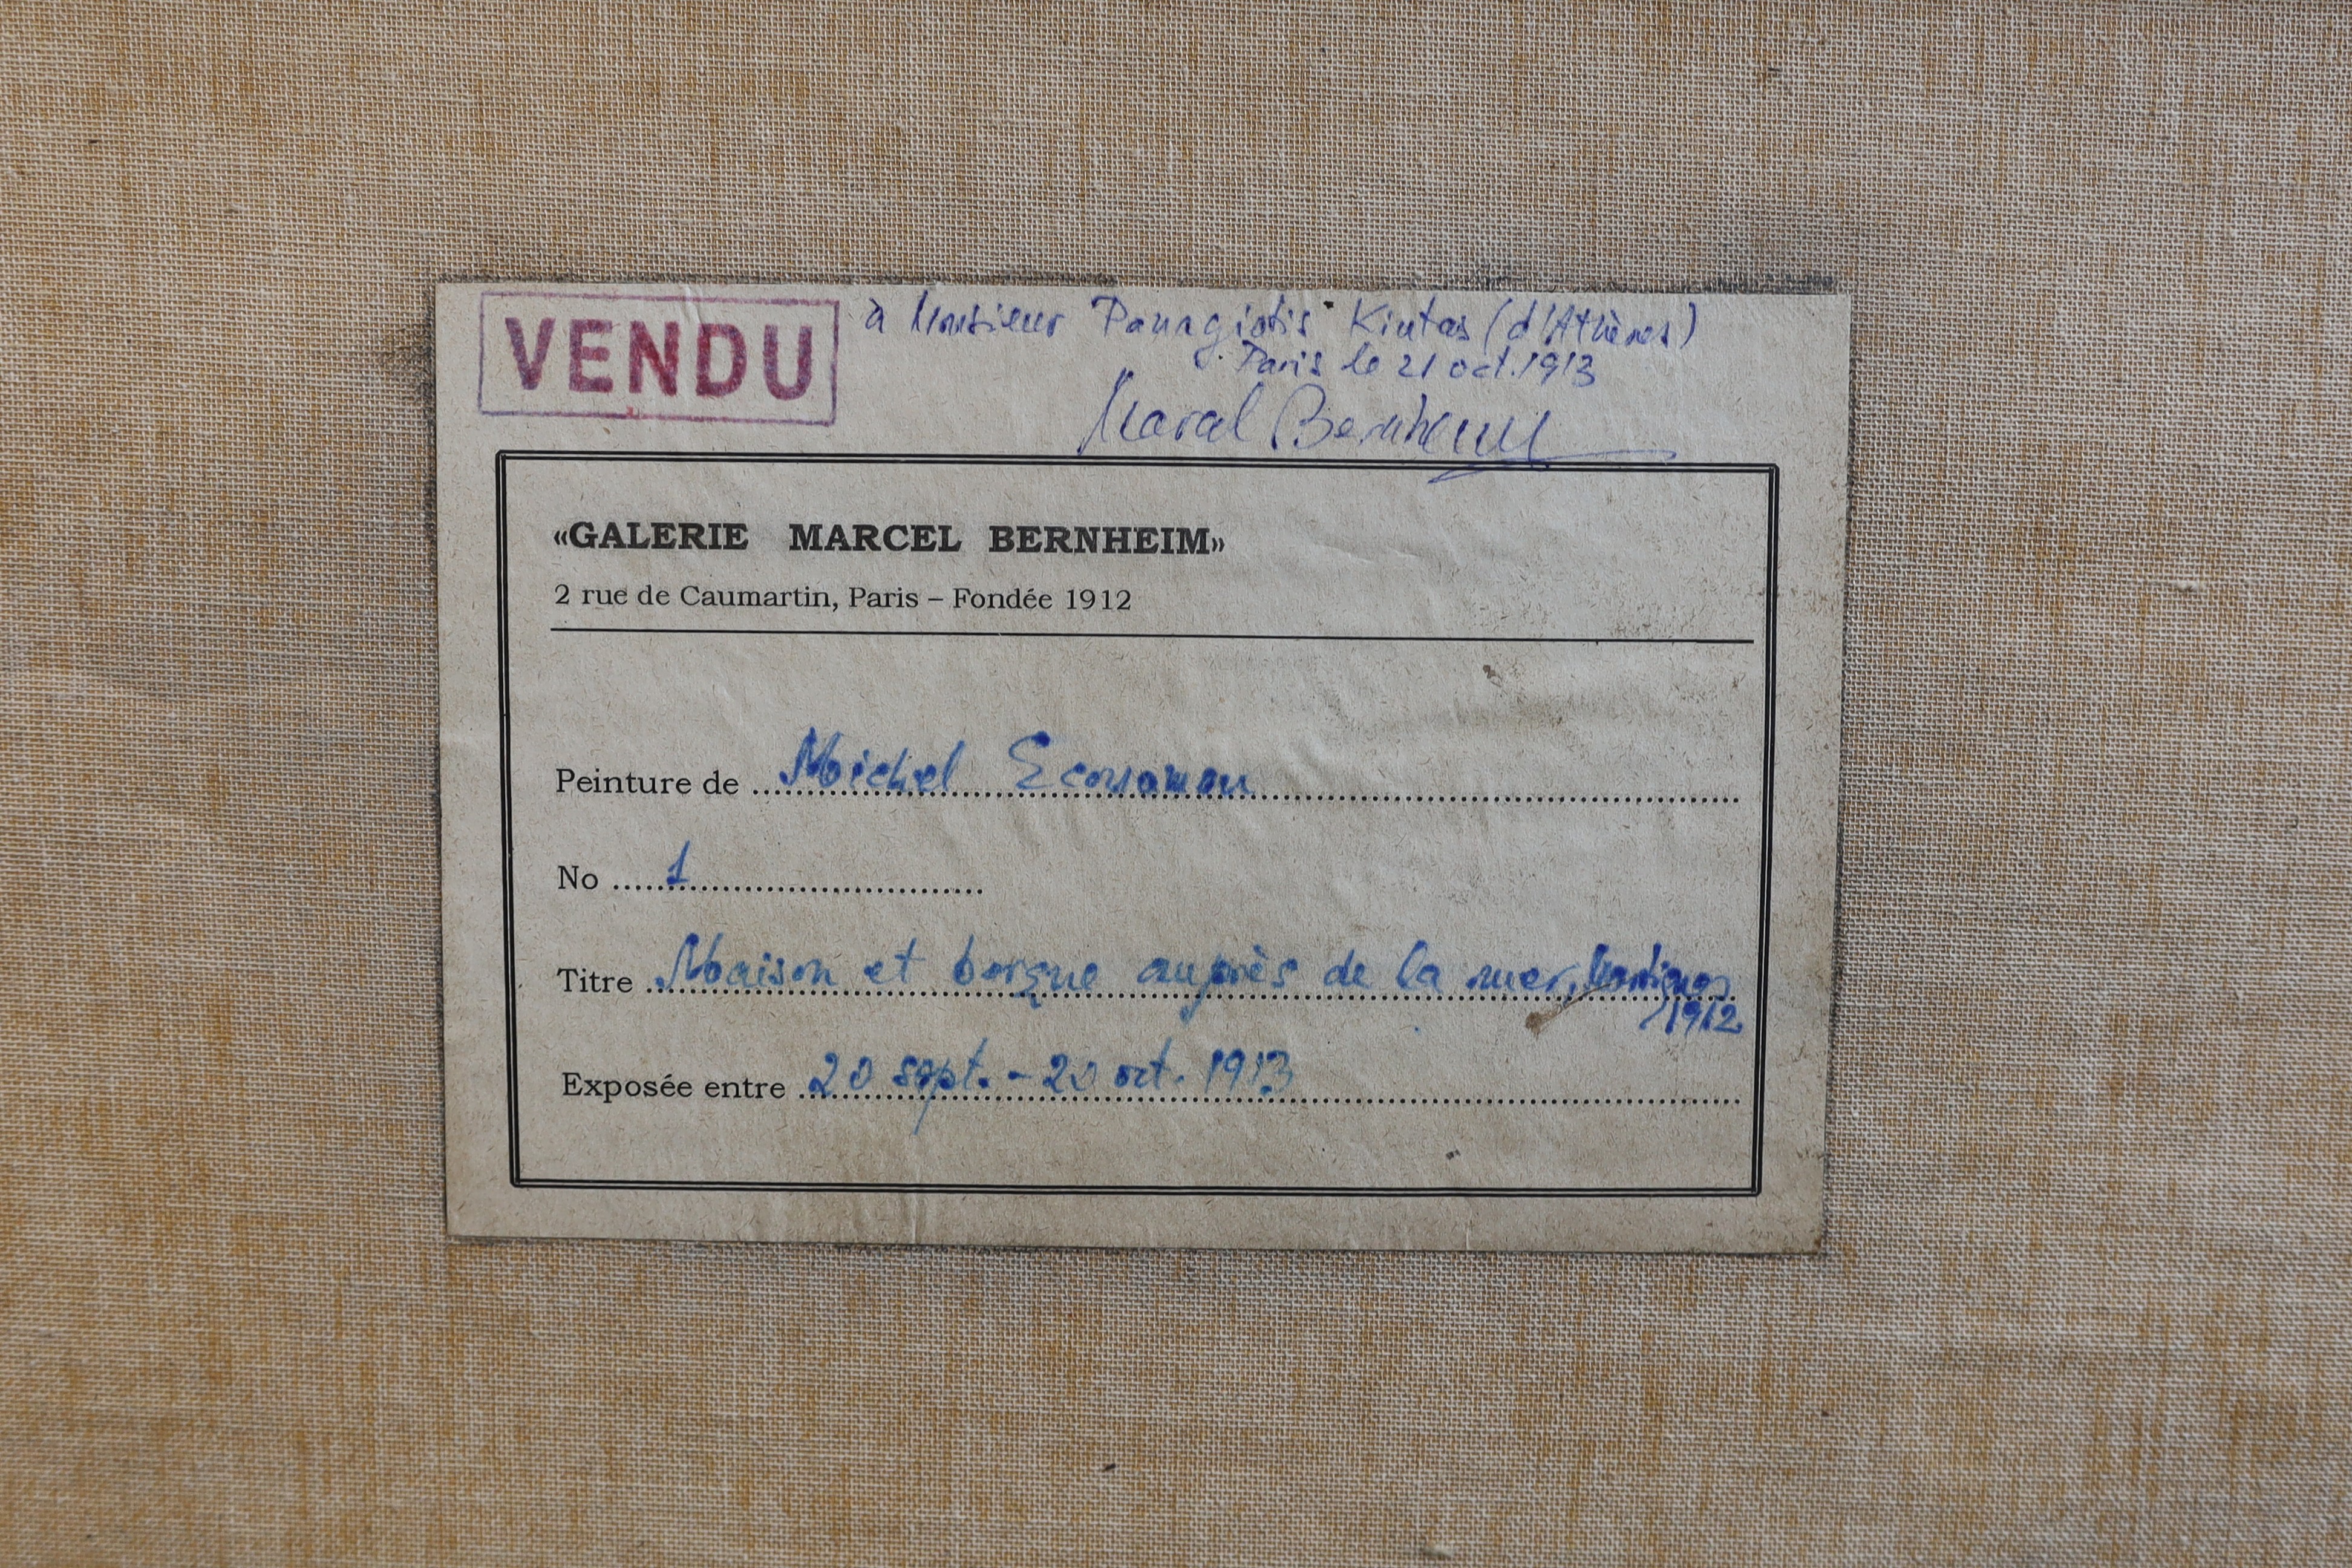 VENDU
à Monsieur Panagiotis Kiutas (d'Athènes)
Paris le 21 oct. 1913
Marcel Bernheim
«GALERIE MARCEL BERNHEIM»
2 rue de Caumartin, Paris – Fondée 1912
Peinture de Michel Economou
No 1
Titre Maison et borque auprès de la mer, Martigues
1912
Exposée entre 20 sept. - 20 oct. 1913